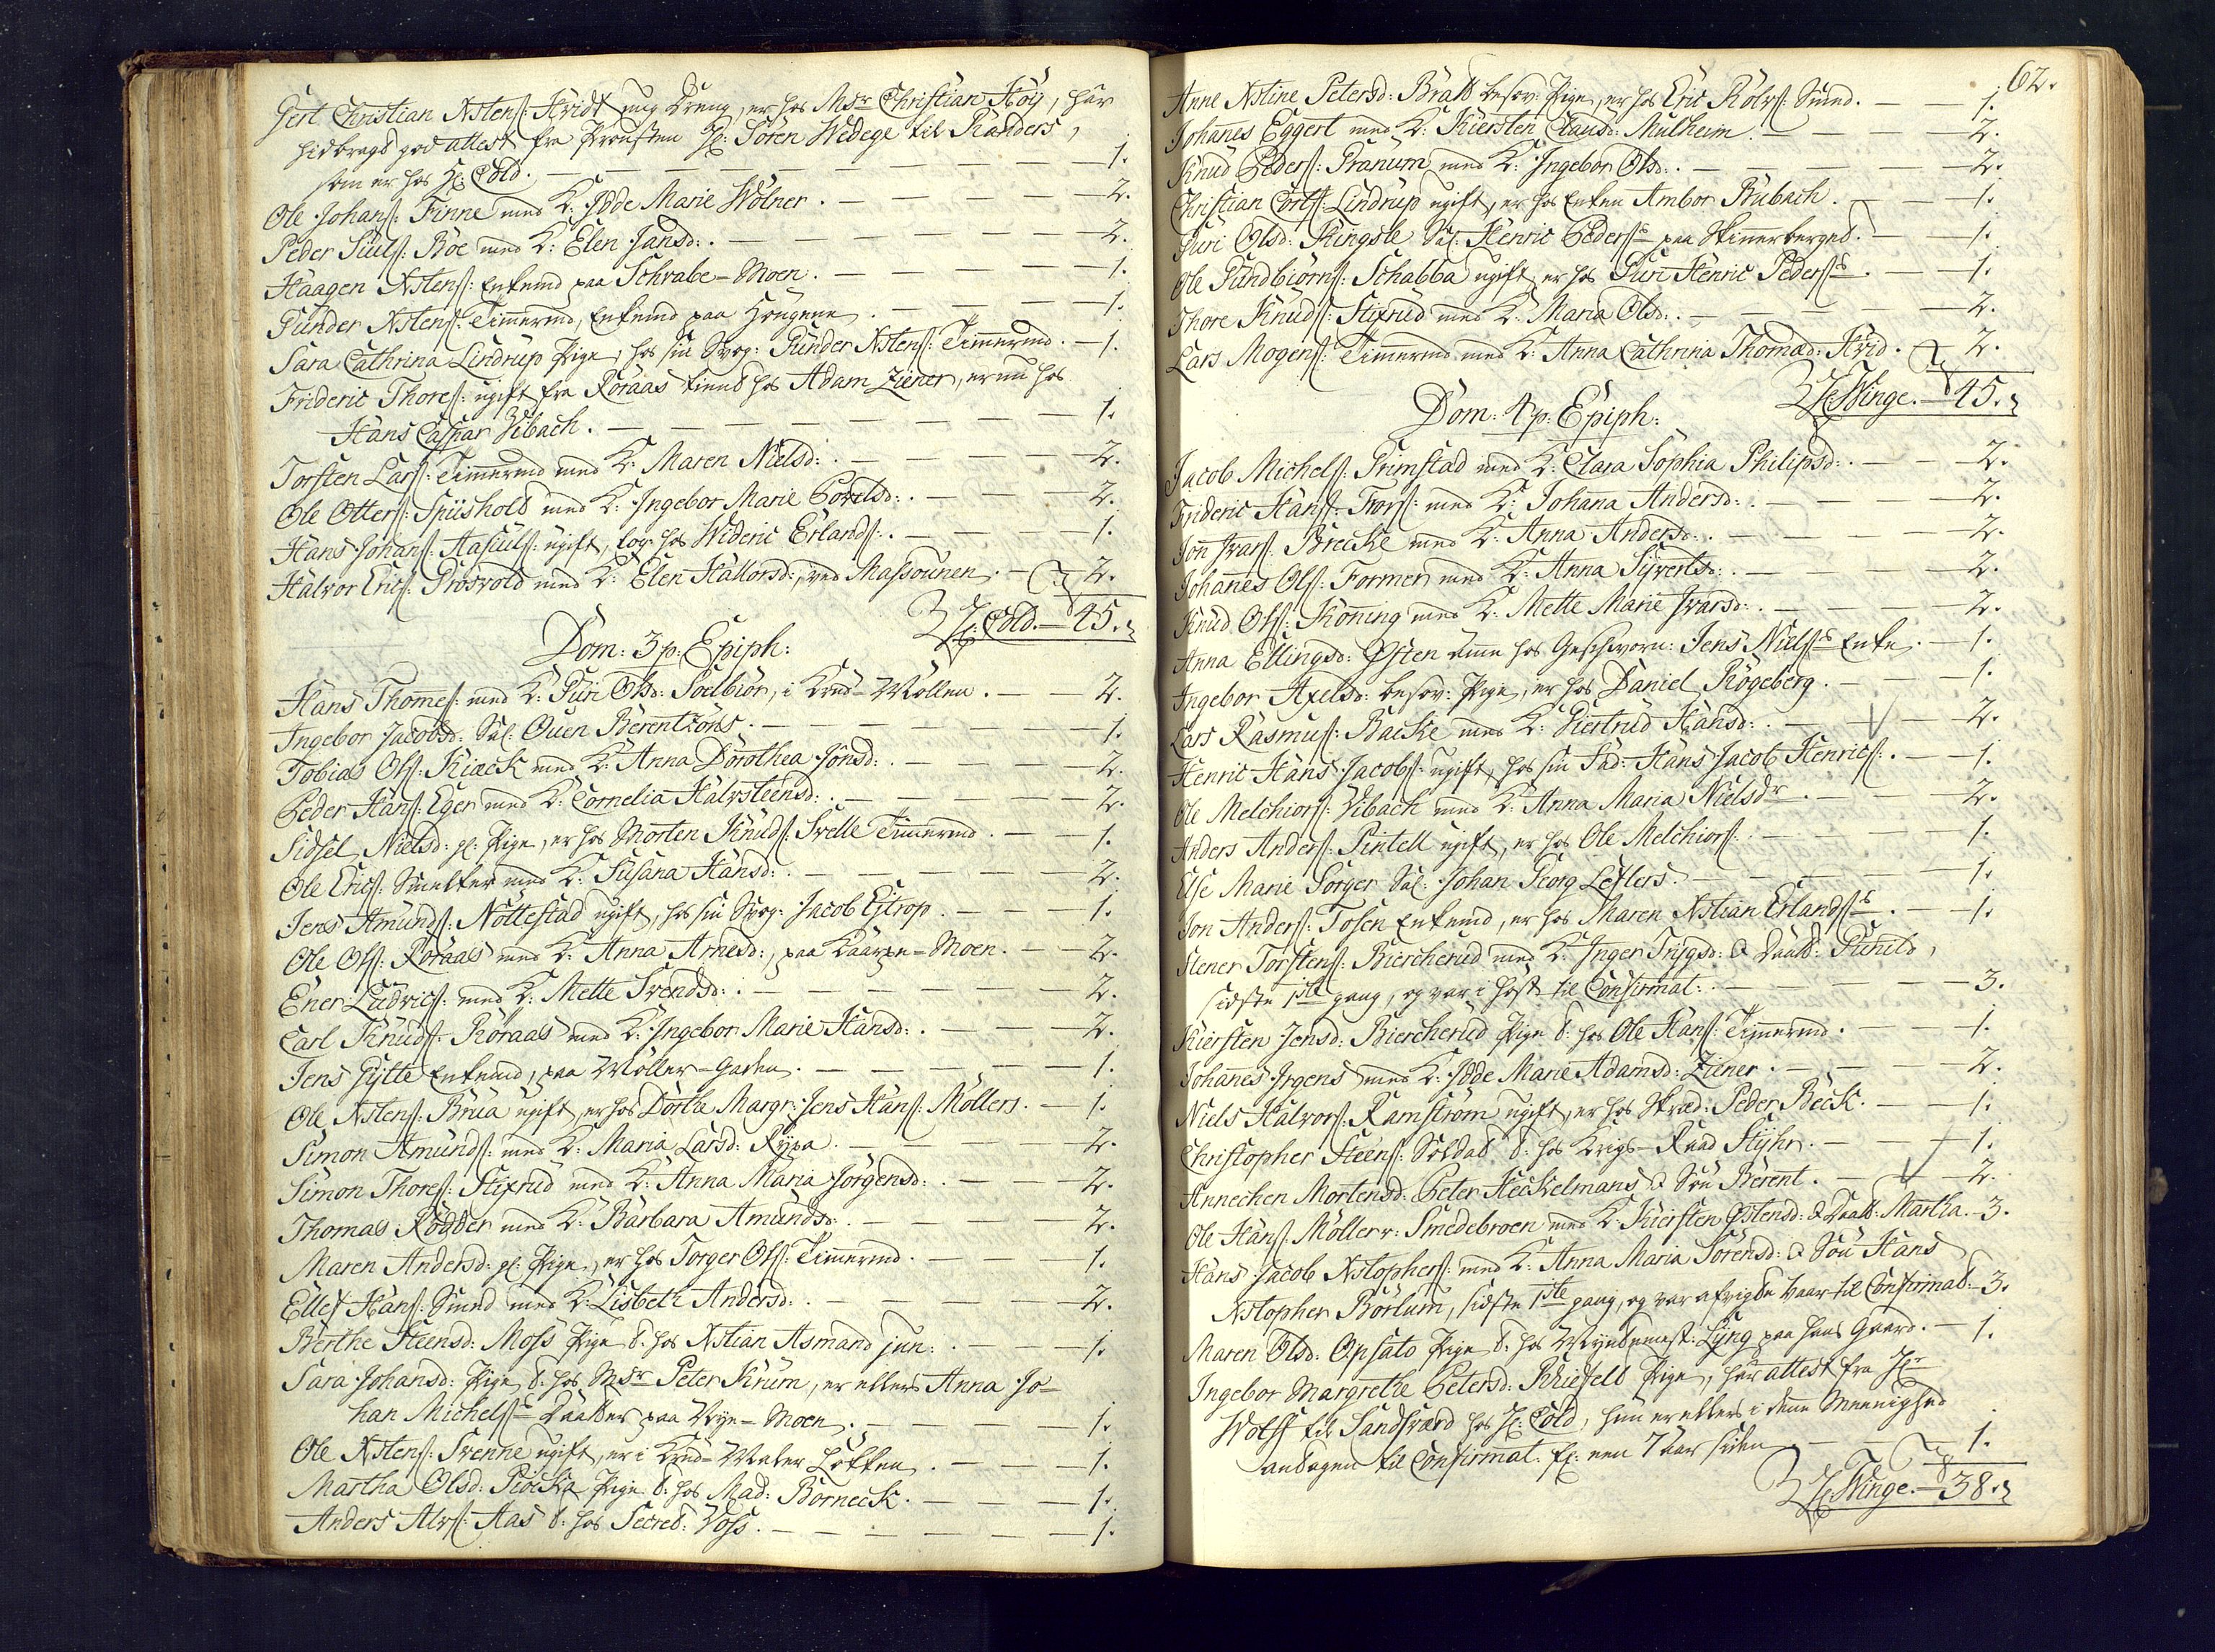 Gert Christian Xstens: Hvidt ung Dreng, er hos Msr Christian Höy, har
hidbragt god attest fra Provsten Hr: Sören Wedege til Randers,
som er hos Hr: Cold. — 1.
Ole Johans: Finne med K: Ydde Marie Wölner. — 2.
Peder Siuls: Böe med K: Elen Jansd: — 2.
Haagen Xstens: Enkemd paa Schrabe-Moen. — 1.
Gunder Xstens: Timermd, Enkemd paa Haugene. — 1.
Sara Cathrina Lindrup Pige, hos sin Svog: Gunder Xstens: Timermd. — 1.
Frideric Thores: ugift fra Röraas tient hos Adam Ziener, er nu hos
Hans Caspar Vibach. — 1.
Torsten Lars: Timermd med K: Maren Nielsd: — 2.
Ole Otters: Spiishold med K: Ingebor Marie Povelsd: — 2.
Hans Johans: Aasiuls: ugift, log: hos Wideric Erlands: — 1.
Halvor Erics: Prösvold med K: Elen Hallorsd:, ved Massovnen. — 2.
Hr: Cold. — 45.
Dom: 3 p: Epiph:
Hans Thomes: med K: Guri Olsd: Soelbiör, i Krud-Möllen. — 2.
Ingebor Jacobsd: Sal: Ouen Berentzöns. — 1.
Tobias Ols: Kiæck med K: Anna Dorothea Jonsd: — 2.
Peder Hans: Eger med K: Cornelia Halvsteensd: — 2.
Sidsel Nielsd: gl: Pige, er hos Morten Knuds: Svelle Timermd. — 1.
Ole Erics: Smelter med K: Susana Hansd: — 2.
Jens Amunds: Nöttestad ugift, hos sin Svog: Jacob Ejtrop. — 1.
Ole Ols: Röraas med K: Anna Arnesd:, paa Kaarpe-Moen. — 2.
Ener Ludvics: med K: Mette Svendsd: — 2.
Carl Knuds: Röraas med K: Ingebor Marie Hansd: — 2.
Jens Gytte Enkemd, paa Möller-Gaden. — 1.
Ole Xstens: Brua ugift, er hos Dorthe Margr: Jens Hans: Möllers. — 1.
Simon Amunds: med K: Maria Larsd: Rypa. — 2.
Simon Thores: Stixrud med K: Anna Maria Jörgensd: — 2.
Thomas Rödder med K: Barbara Amundsd: — 2.
Maren Andersd: gl: Pige, er hos Torger Ols: Timermd. — 1.
Ellef Hans: Smed med K: Lisbeth Andersd: — 2.
Berthe Steensd: Moss Pige t: hos Xstian Asmand jun: — 1.
Sara Johansd: Pige t: hos Msr Peter Krum, er ellers Anna Jo-
han Michelss Daatter paa Nye-Moen. — 1.
Ole Xstens: Svenne ugift, er i Krud-Maler Lökken. — 1.
Martha Olsd: Röcka Pige t: hos Mad: Borneck. — 1.
Anders Alvs: Aas t: hos Secret: Voss. — 1.
62.
Anne Xstine Petersd: Bratt besov: Pige, er hos Eric Rolvs: Smed. — 1.
Johannes Eggert med K: Kiersten Clausd: Mulheim. — 2.
Knud Peders: Granum med K: Ingebor Olsd: — 2.
Christian Corts: Lindrup ugift, er hos Enken Ambor Rubach. — 1.
Guri Olsd: Ringsle Sal: Henric Pederss paa Skinerberget. — 1.
Ole Gundbiörns: Schabba ugift, er hos Guri Henric Pederss. — 1.
Thore Knuds: Stixrud med K: Maria Olsd: — 2.
Lars Mogens: Timermd med K: Anna Cathrina Thomasd: Hvid. — 2.
Hr: Winge. — 45.
Dom: 4 p: Epiph:
Jacob Michels: Grimstad med K: Clara Sophia Philipsd: — 2.
Frideric Hans: Frors: med K: Johana Andersd: — 2.
Jon Ivars: Brecke med K: Anna Andersd: — 2.
Johannes Ols: Former med K: Anna Syvertsd: — 2.
Knud Ols: Koning med K: Mette Marie Ivarsd: — 2.
Anna Ellingsd: Östen Amme hos Geschworn: Jens Nielss Enke. — 1.
Ingebor Axelsd: besov: Pige, er hos Daniel Rögeberg. — 1.
Lars Rasmus: Backe med K: Giertrud Hansd: — 2.
Henric Hans Jacobs: ugift, hos sin Fad: Hans Jacob Henrics: — 1.
Ole Melchiors: Vibach med K: Anna Maria Nielsdr — 2.
Anders Anders: Pintell ugift, er hos Ole Melchiors: — 1.
Else Marie Sorger Sal: Johan Georg Leflers. — 1.
Jon Anders: Tosen Enkemd, er hos Maren Xstian Erlandss. — 1.
Stener Torstens: Biercherud med K: Inger Trygsd: & Daatt: Gunild,
sidste 1ste gang, og var i Höst til Confirmat: — 3.
Kiersten Jensd: Biercherud Pige t: hos Ole Hans: Timermd. — 1.
Johanes Irgens med K: Ydde Marie Adamsd: Ziener. — 2.
Niels Halvors: Ramström ugift, er hos Skræd: Peder Beck. — 1.
Christopher Steens: Soldat t: hos Krigs-Raad Styhr. — 1.
Annechen Mortensd: Peter Heckelmans & Sön Berent. — 2.
Ole Hans: Möller v: Smedebroen med K: Kiersten Östensd: & Daatt: Martha. — 3.
Hans Jacob Xstophers: med K: Anna Maria Sörensd: & Sön Hans
Xstopher Börlum, sidste 1ste gang, og var afvigte Vaar til Confirmat: — 3.
Maren Olsd: Opsato Pige t: hos Myntmest: Lyng paa hans Gaard. — 1.
Ingebor Margrethe Petersd: Rhiefelt Pige, har attest fra Hr
Wolff til Sandsværd hos Hr: Cold, hun er ellers i denne Meenighed
antagen til Confirmat: for: een 7 aar siden — 1.
Hr: Winge. — 38.